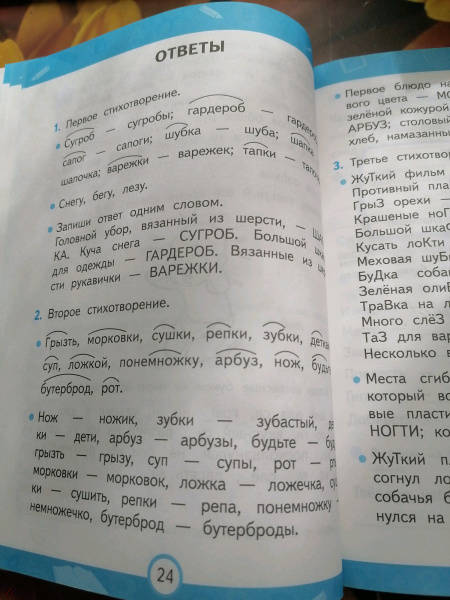 ОТВЕТЫ
1. Первое стихотворение.
• Сугроб — сугробы; гардероб —
сапог — сапоги; шубка — шуба; шапка
шапочка; варежки — варежек; тапки —
Снегу, бегу, лезу.
• Запиши ответ одним словом.
Головной убор, вязанный из шерсти, —
КА. Куча снега — СУГРОБ. Большой
для одежды — ГАРДЕРОБ. Вязанные из
сти рукавички — ВАРЕЖКИ.
2. Второе стихотворение.
• Грызть, морковки, сушки, репки, зубки,
суп, ложкой, понемножку, арбуз, нож,
бутерброд, рот.
• Нож — ножик, зубки — зубастый,
ки — дети, арбуз — арбузы, будьте —
грызть — грызу, суп — супы, рот —
морковки — морковок, ложка — ложечка,
ки — сушить, репки — репа, понемножку —
немножечко, бутерброд — бутерброды.
24
• Первое блюдо
вого цвета —
зелёной кожурой
АРБУЗ; столовый
хлеб, намазанный
3. Третье
• ЖуТкий фильм
Противный
ГрыЗ орехи —
Крашеные
Большой
Кусать лоКти
Меховая
БуДка
Зелёная
ТраВка на
Много слёЗ
ТаЗ для
Несколько
• Места
который
вые
НОГТИ;
• ЖуТкий
согнул
собачья
нулся на